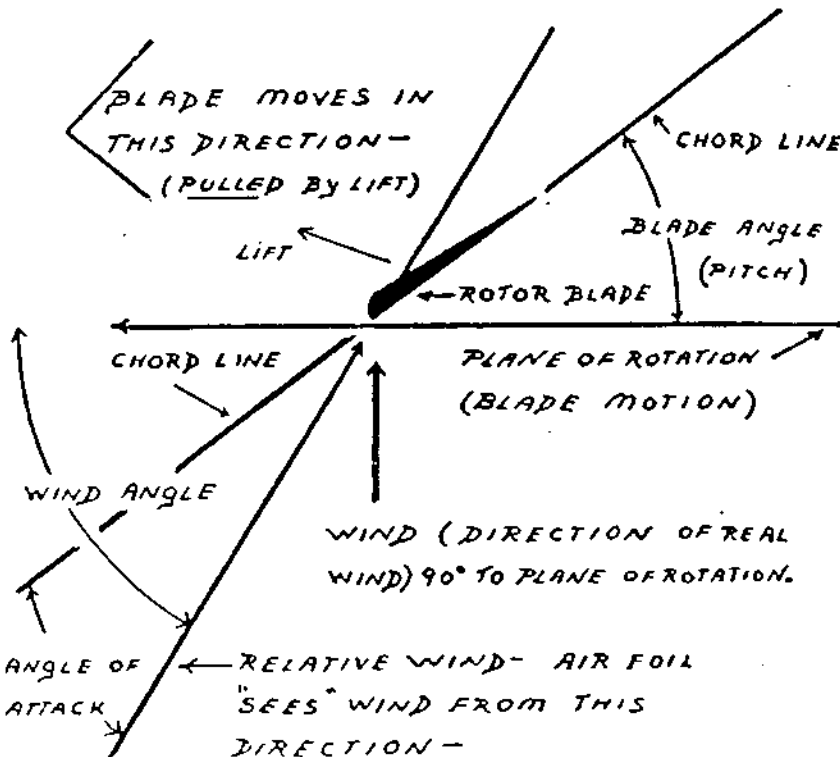 BLADE MOVES IN
THIS DIRECTION—
(PULLED By LIFT)
CHORD LINE
LIFT
BLADE ANGLE
(PITCH)
ROTOR BLADE
CHORD LINE
PLANE OF ROTATION
(BLADE MOTION)
WIND ANGLE
WIND (DIRECTION OF REAL
WIND) 90° TO PLANE OF ROTATION.
ANGLE OF
ATTACK
RELATIVE WIND- AIR FOIL
"SEES" WIND FROM THIS
DIRECTION—